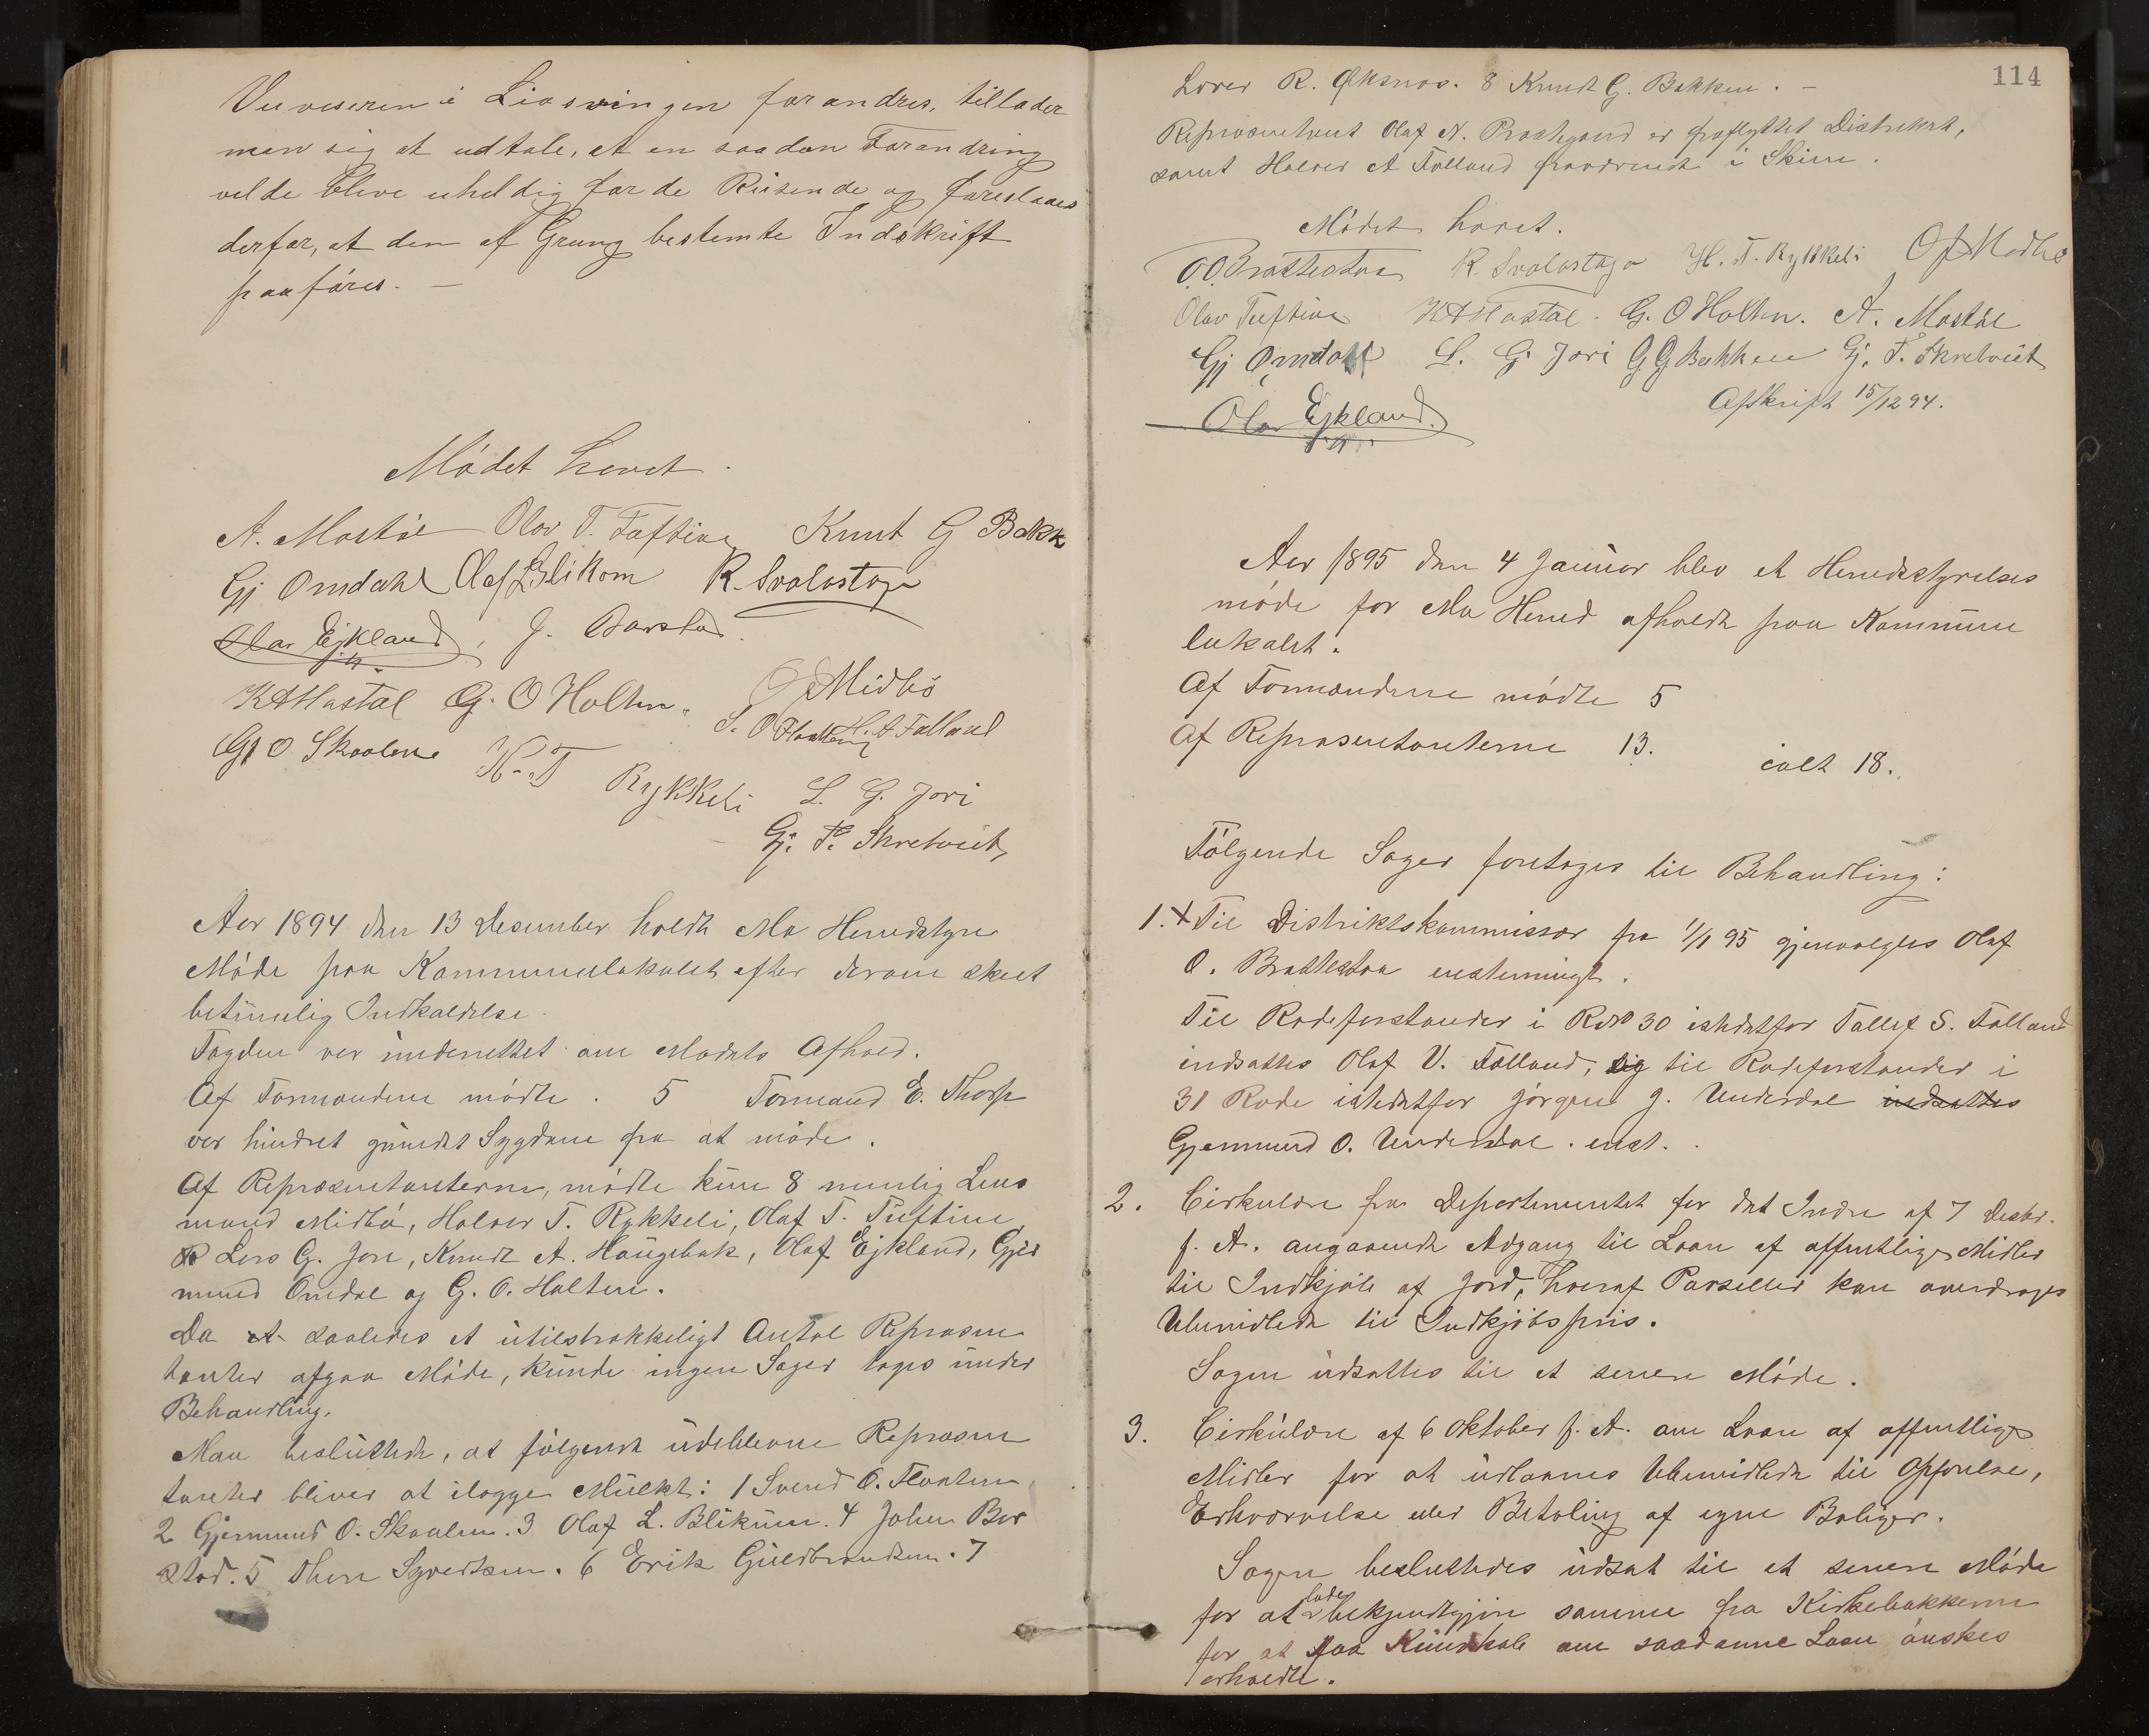 Veiviseren i Liosvingen forandres, tillader
man sig at udtale, at en saadan Forandring
vilde blive uheldig for de Reisende og foreslaaes
derfor, at den af Grung bestemte Indskrift
paaføres. —
Mødet hævet.
A. Mostøl Olav T. Tuftine Knut G Bakk
Gj Omdahl Olaf L Blikom R. Svalastoga
Olav Ejkland, J. Barstad.
KAHastal G. O Holten. O J Midbö
S. O Flaaten H. A Falland
Gj O Skaalene H. T Rykkeli L. G. Jori
Gj. P. Skretveit
Aar 1894 den 13 Desember holdt Mo Heredstyre
Møde paa Kommunelokalet efter derom skeet
betimelig Indkaldelse.
Fogden var underrettet om Mødets Afhold.
Af Formændene mødte. 5 Formand E. Thorp
var hindret grundet Sygdom fra at møde.
Af Repræsentanterne, mødte kun 8 nemlig Lens
mand Midbö, Halvor T. Rykkeli, Olaf T. Tuftine,
Lars G. Jore, Knudt A. Haugebak, Olaf Ejkland, Gjer
mund Omdal og G. O. Holten.
Da saaledes et utilstrækkeligt Antal Repræsen
tanter afgav Møde, kunde ingen Sager tages under
Behandling.
Man besluttede, at følgende udeblevne Repræsen
tanter bliver at ilægge Mulkt: 1 Svend O. Flaaten.
2 Gjermund O. Skaalen. 3 Olaf L. Blikum. 4 Johen Bor
stad. 5 Thore Syvertsen. 6 Erik Guldbrandsen. 7
114
Lover R. Øksnos. 8 Knudt G. Bakken. —
Repræsentant Olaf N. Prestgaard er fraflyttet Distriktet,
samt Halvor A Falland fraværende i Skien.
Mødet hævet.
O.O.Brattestaa R. Svalastoga H. T. Rykkeli O J Midbö
Olav Tuftine KAHastal. G. O Holten. A. Mostøl
Gj Omdahl L. G. Jori G G Bakken Gj. P. Skretveit
Olav Ejkland.
Afskrift 15/12 94.
Aar 1895 den 4 Januar blev et Heredsstyrelses
møde for Mo Hered afholdt paa Kommune
lokalet.
Af Formændene mødte 5
Af Repræsentanterne 13. ialt 18.
Følgende Sager foretoges til Behandling:
1. + Til Distriktskommissær fra 1/1 95 gjenvalgtes Olaf
O. Brattestaa enstemmigt.
Til Rodeforstander i Rode 30 istedetfor Tallef S. Falland
indsattes Olaf V. Falland, og til Rodeforstander i
31 Rode istedetfor Jørgen J. Underdal indsattes
Gjermund O. Underdal. enst.
2. Cirkulære fra Departementet for det Indre af 7 Decbr.
f. A. angaaende Adgang til Laan af offentlige Midler
til Indkjøb af Jord, hvoraf Parseller kan overdrages
Ubemidlede til Indkjøbspris.
Sagen udsattes til et senere Møde.
3. Cirkulære af 6 Oktober f. A. om Laan af offentlige
Midler for at udlaanes Ubemidlede til Opførelse,
Erhværvelse eller Betaling af egne Boliger.
Sagen besluttedes udsat til et senere Møde
for at lade bekjendtgjøre samme fra Kirkebakkerne
for at faa Kundskab om saadanne Laan ønskes
erholdte.